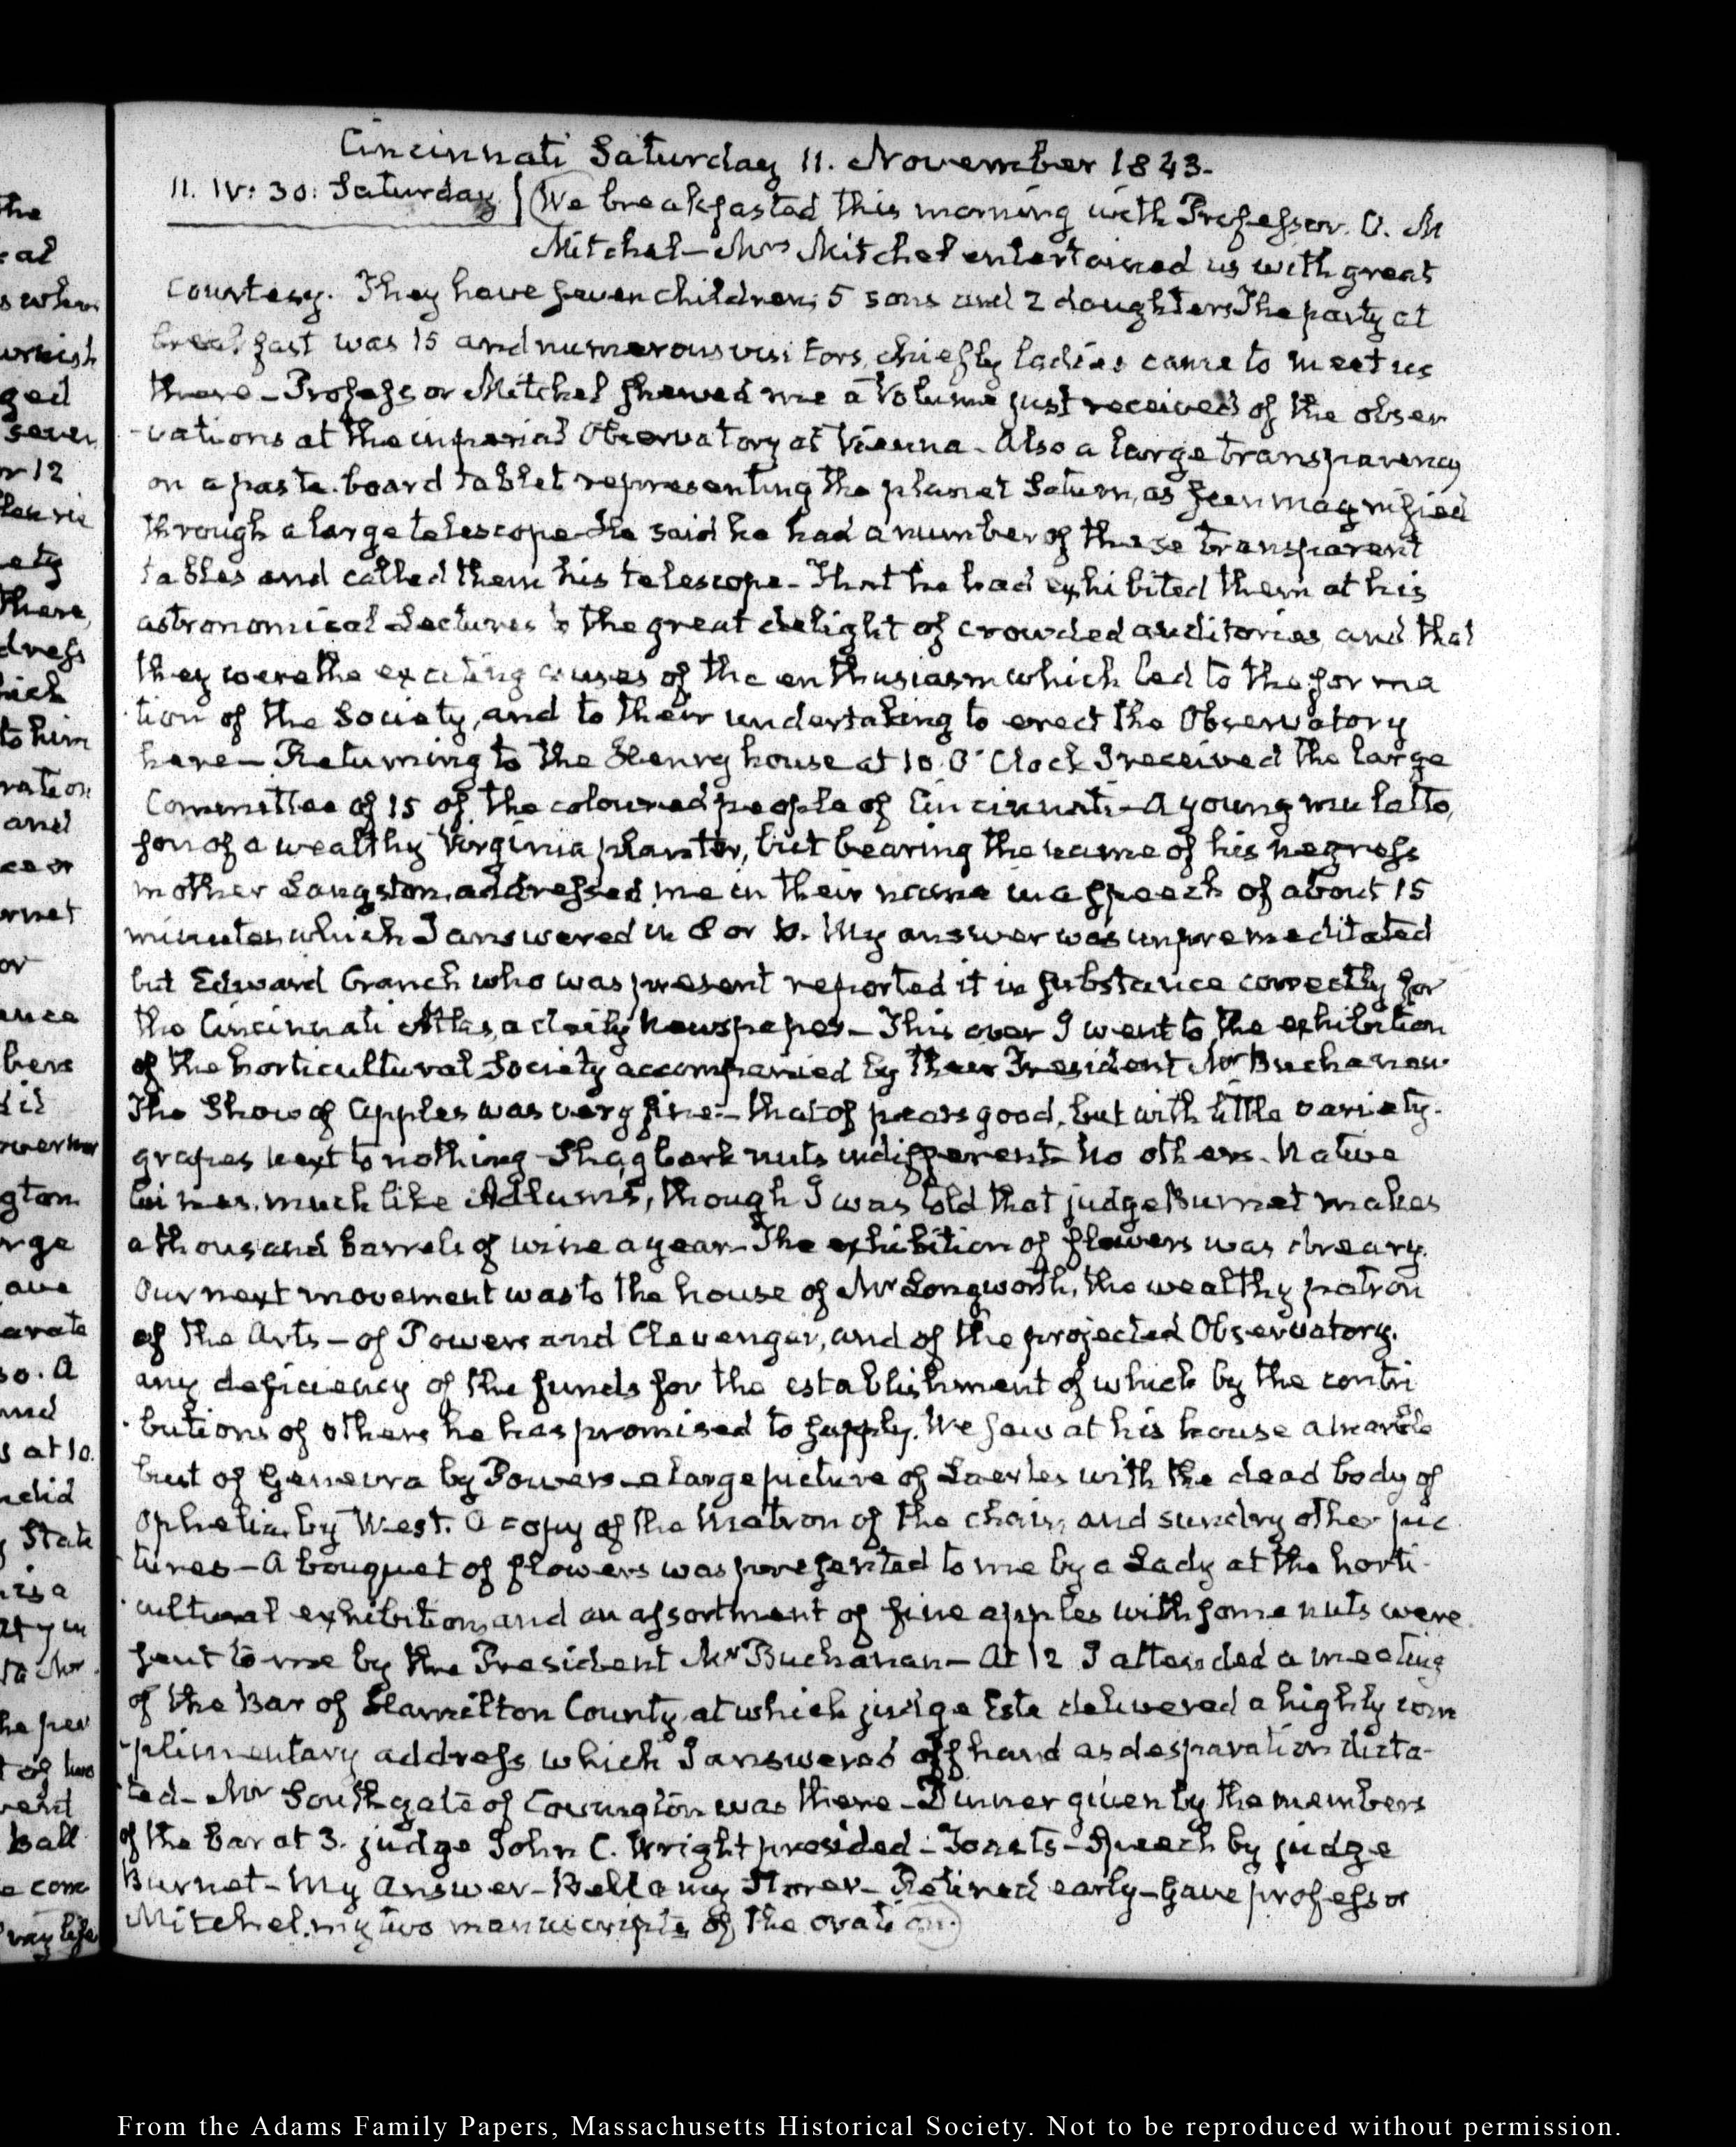 Cincinnati Saturday 11. November 1843.
11. IV: 30: Saturday. We breakfasted this morning with Professor. O. M
Mitchel — Mrs Mitchel entertained us with great
courtesy. They have seven children; 5 sons and 2 daughters The party at
breakfast was 15 and numerous visitors, chiefly ladies came to meet us
there — Professor Mitchel shewed me a Volume just received of the obser
-vations at the imperial Observatory at Vienna — Also a large transparency
on a paste-board tablet representing the planet Saturn, as seen magnified
through a large telescope — He said he had a number of these transparent
tables and called them his telescope — That he had exhibited them at his
astronomical Lectures to the great delight of crowded auditories, and that
they were the exciting causes of the enthusiasm which led to the forma
-tion of the Society, and to their undertaking to erect the Observatory
here — Returning to the Henry house at 10. O'Clock I received the large
Committee of 15 of the coloured people of Cincinnati — A young mulatto,
son of a wealthy Virginia planter, but bearing the name of his negress
mother Langston, addressed me in their name in a speech of about 15
minutes which I answered in 8 or 10. My answer was unpremeditated
but Edward Cranch who was present reported it in substance correctly for
the Cincinnati Atlas, a daily Newspaper — This over I went to the exhibition
of the horticultural Society accompanied by their President Mr Buchanan
The Show of apples was very fine — that of pears good, but with little variety.
grapes next to nothing — Shagbark nuts indifferent — no others. Native
wines, much like Adlum's, though I was told that judge Burnet makes
a thousand barrels of wine a year — The exhibition of flowers was dreary.
Our next movement was to the house of Mr Longworth, the wealthy patron
of the Arts — of Powers and Clevenger, and of the projected Observatory.
any deficiency of the funds for the establishment of which by the contri
-butions of others he has promised to supply. We saw at his house a marble
bust of Genevra by Powers — a large picture of Laertes with the dead body of
Ophelia, by West. A copy of the Madonna of the chair, and sundry other pic
-tures — A bouquet of flowers was presented to me by a Lady at the horti-
-cultural exhibition, and an assortment of fine apples with some nuts were
sent to me by the President Mr Buchanan — At 12 I attended a meeting
of the Bar of Hamilton County, at which judge Este delivered a highly com
-plimentary address, which I answered off hand as desparation dicta-
-ted — Mr Southgate of Covington was there — Dinner given by the members
of the Bar at 3. judge John C. Wright presided — Toasts — Speech by judge
Burnet — My Answer — Bellamy Storer — Retired early — Gave professor
Mitchel, my two manuscripts of the oration.
From the Adams Family Papers, Massachusetts Historical Society. Not to be reproduced without permission.